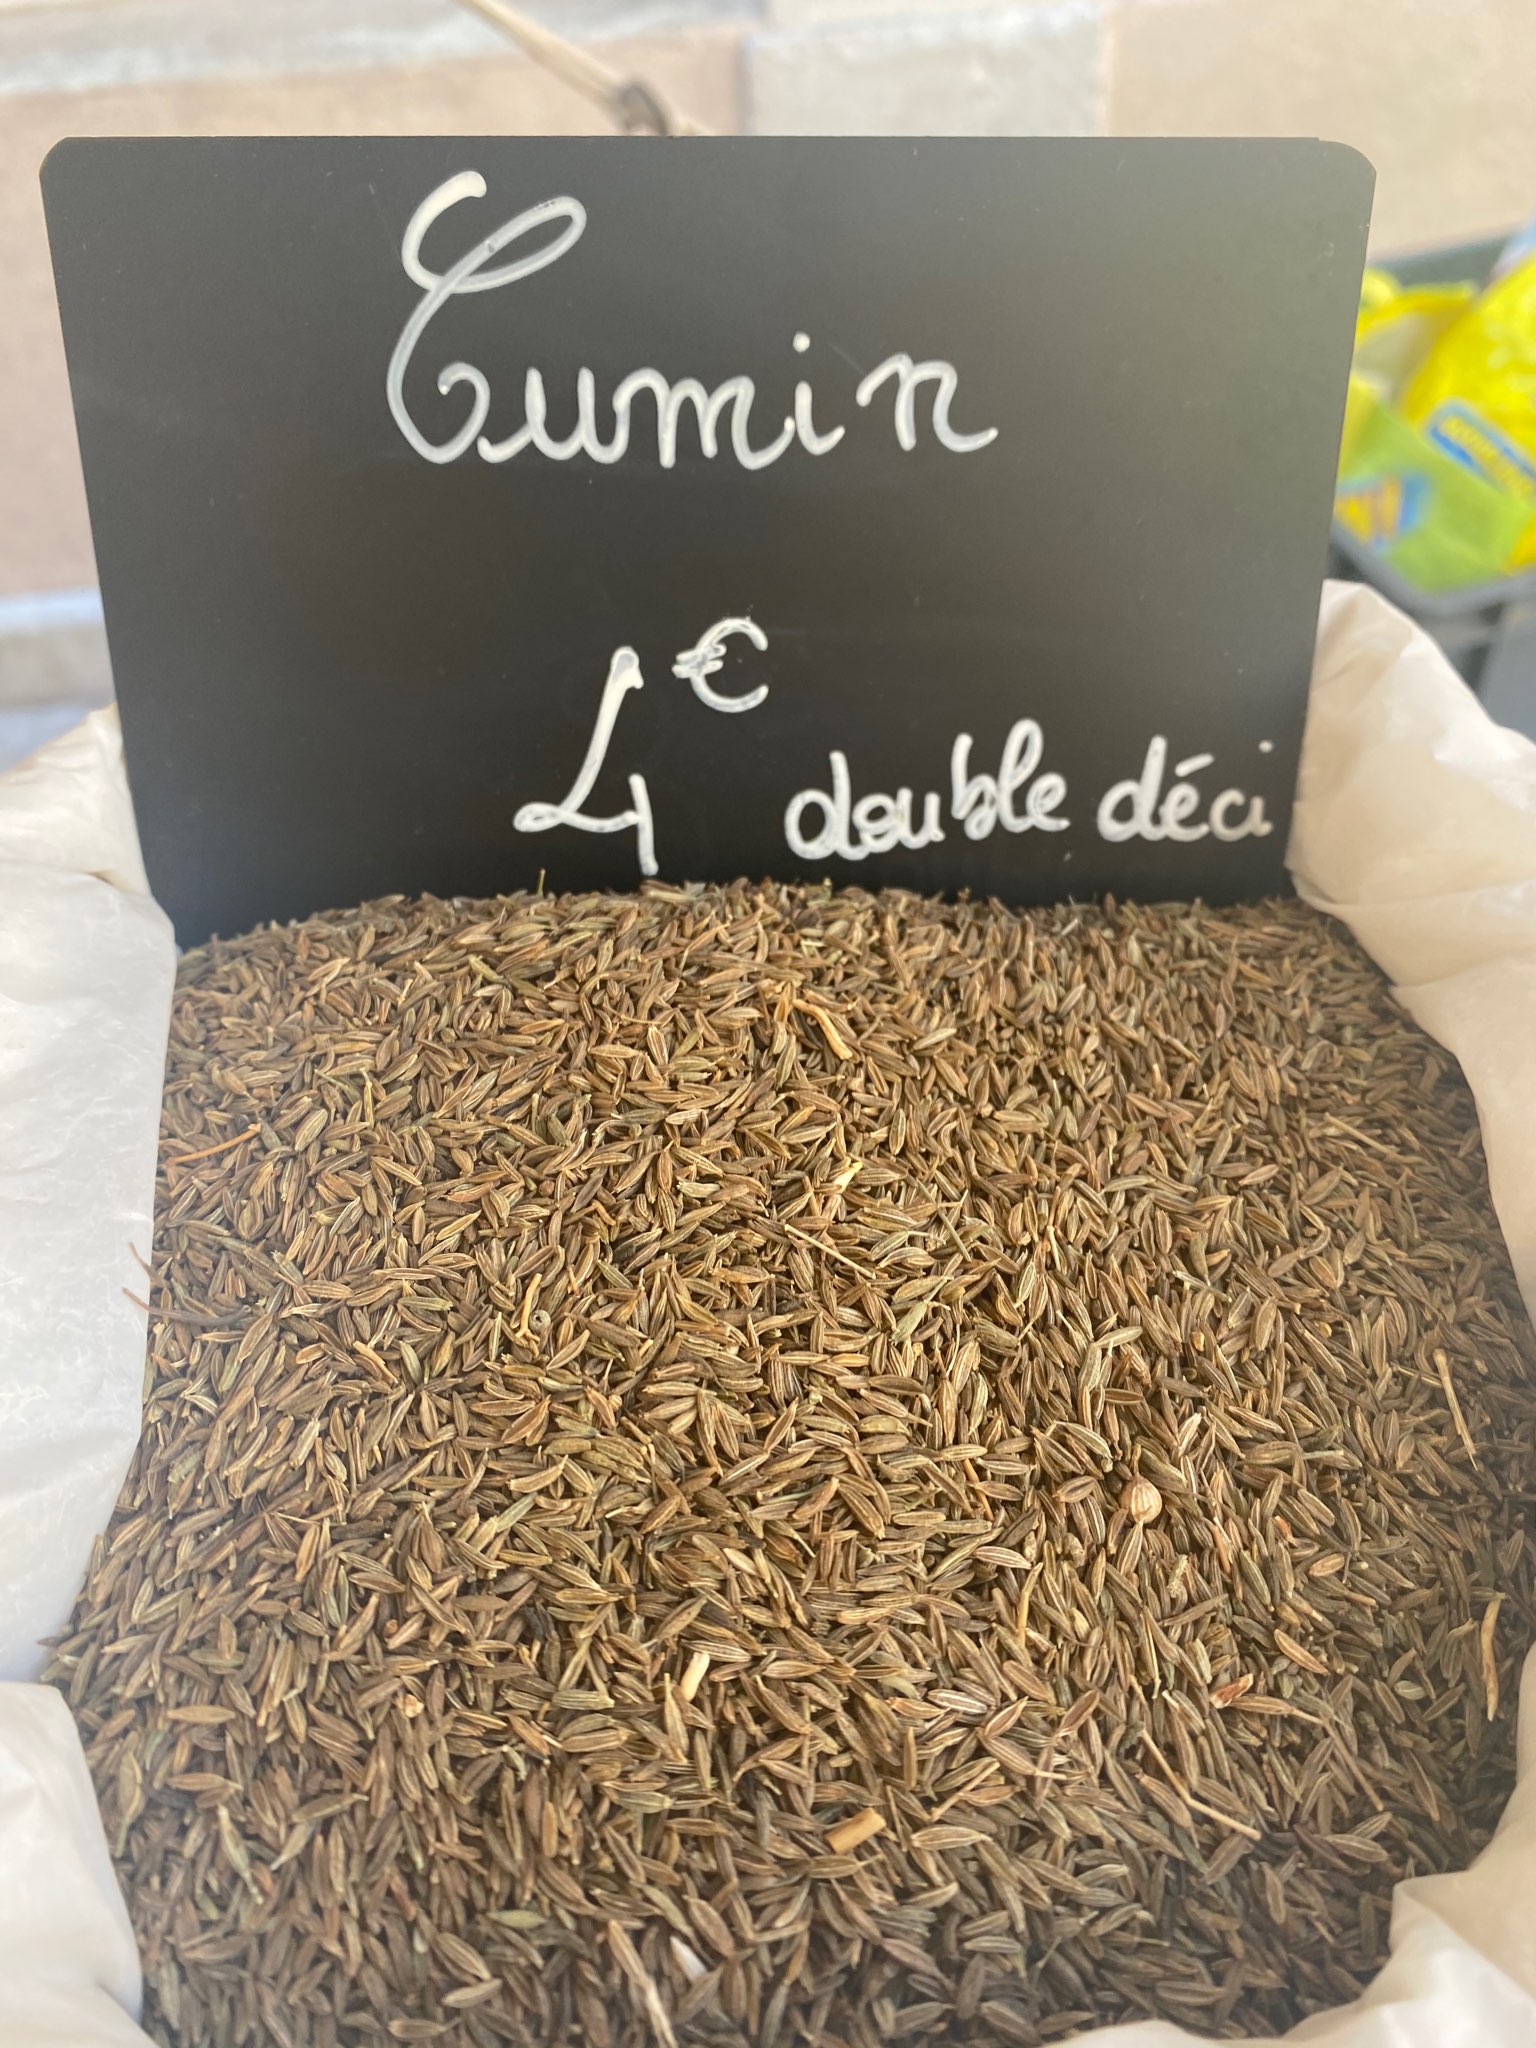 Cumin
4€ double déci